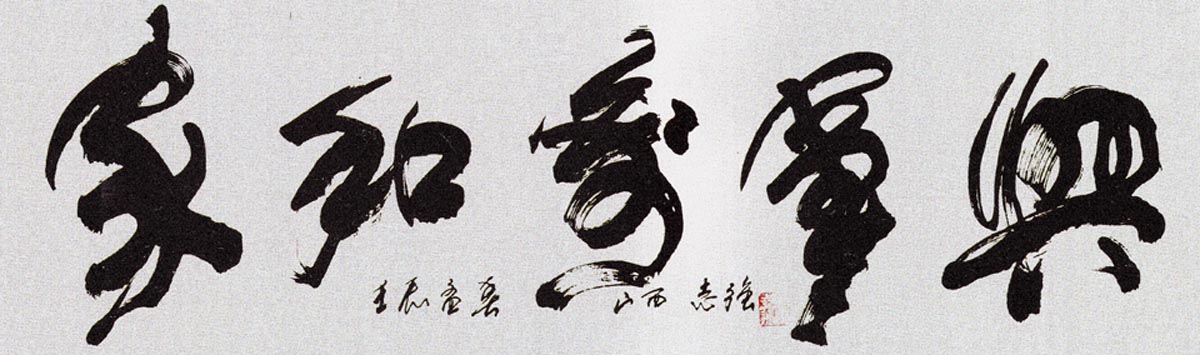 家和萬事興
壬辰孟春 山西 志強